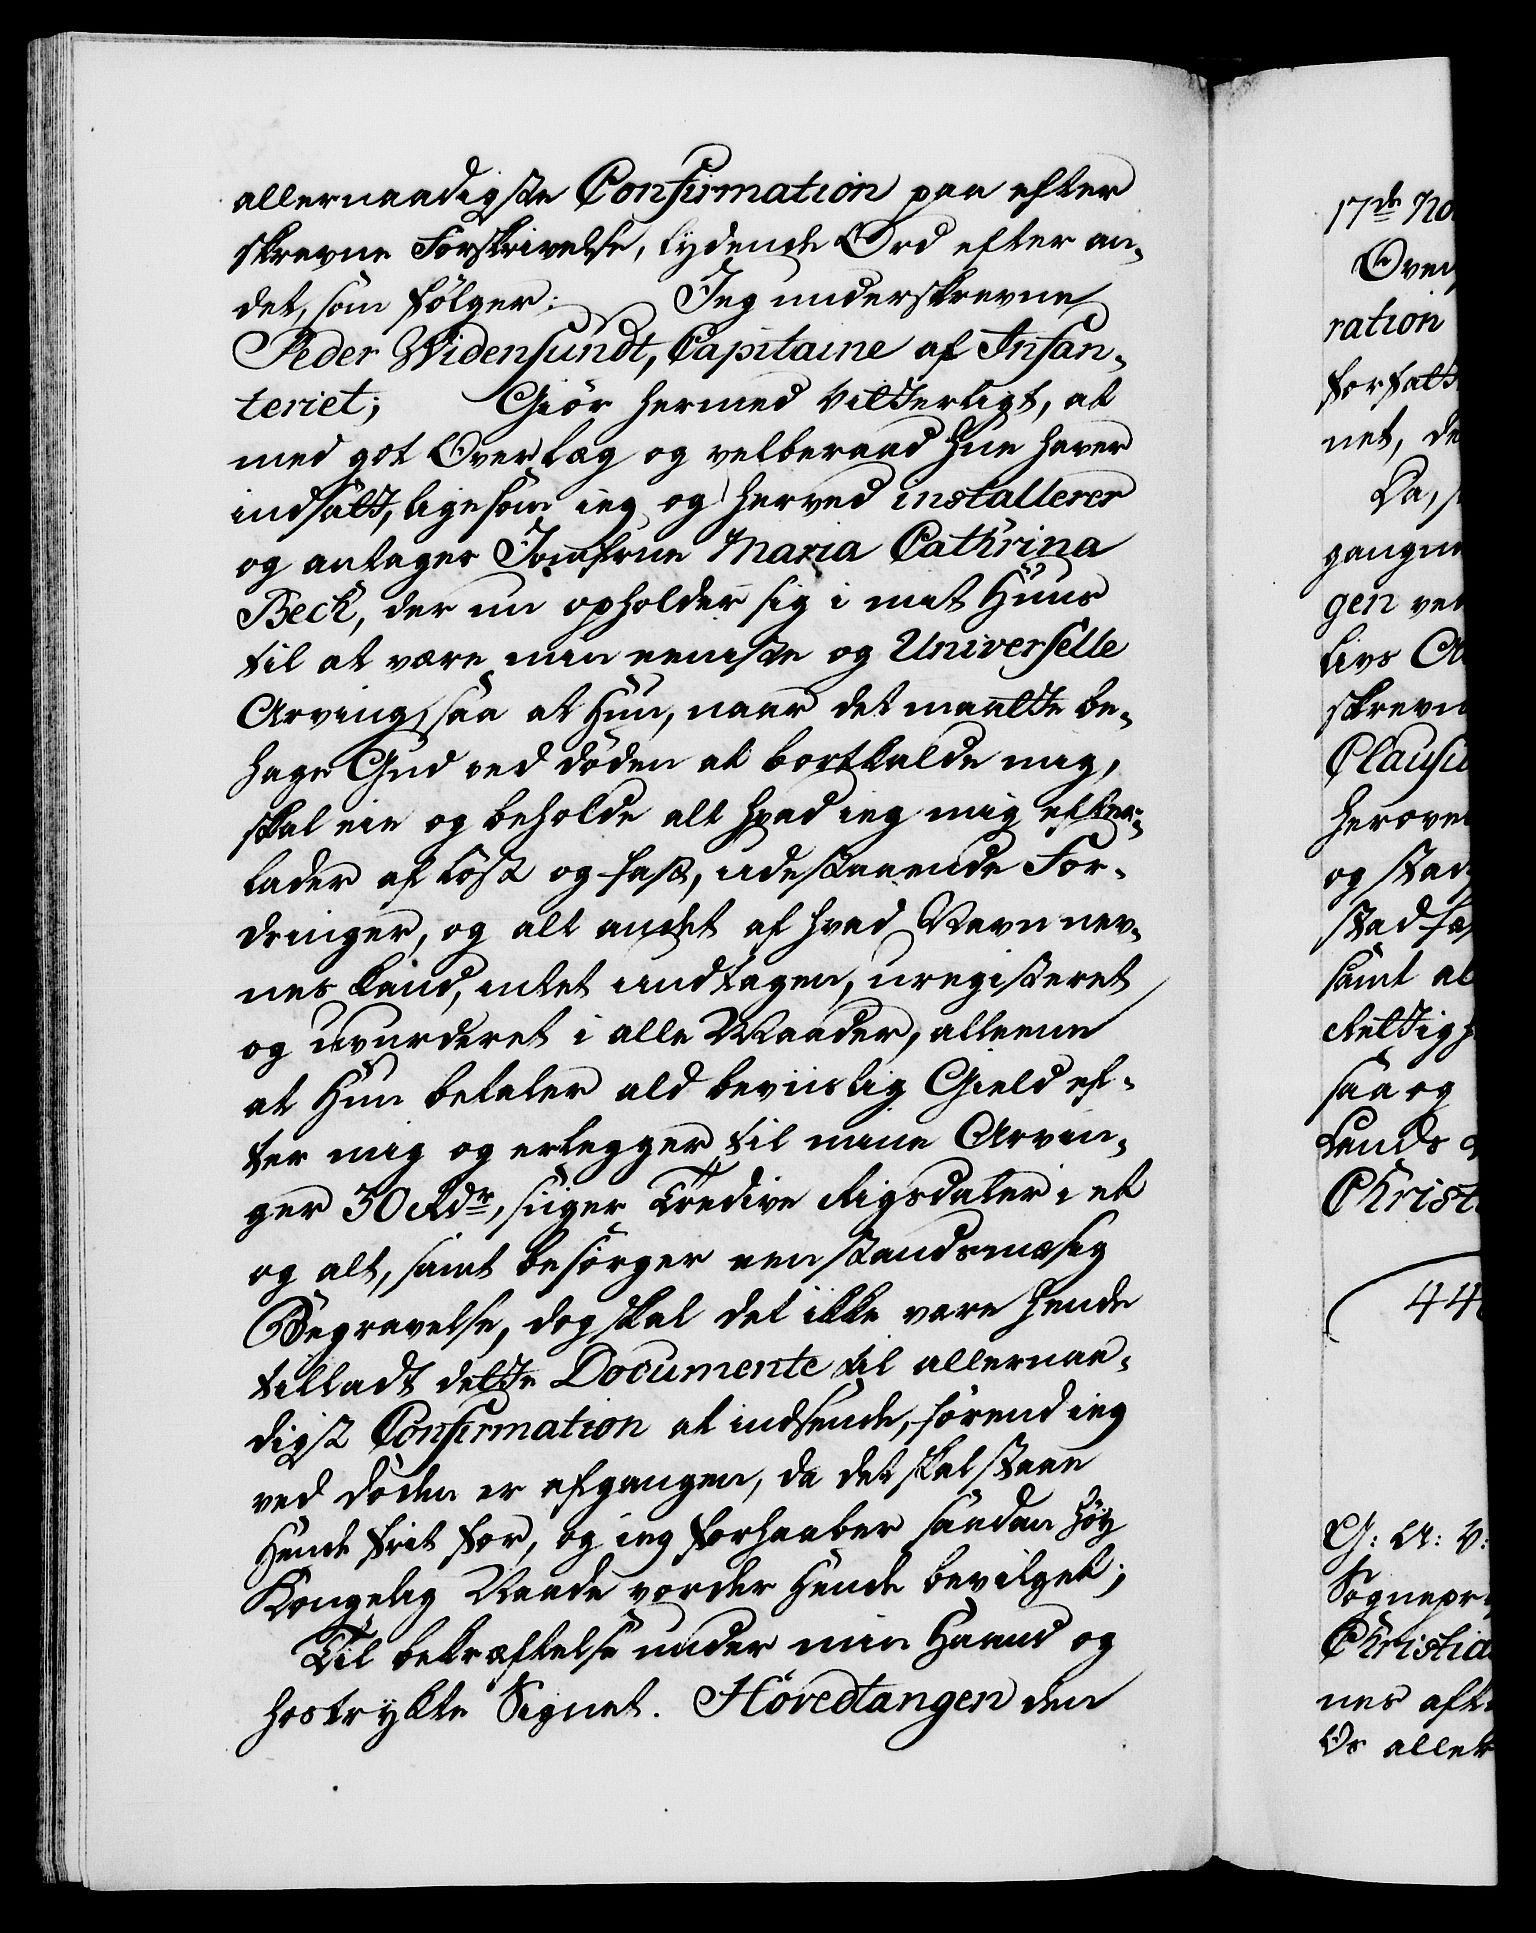 allernaadigste Confirmation paa efter
skrevne Forskrivelse, lydende Ord efter an-
det, som følger: Jeg underskrevne
Peder Widensundt, Capitaine af Infan-
teriet; Giør hermed vitterligt, at
med got Overlæg og velberaad Hue haver
indsatt, ligesom ieg og herved installerer
og antager Jomfrue Maria Cathrina
Beck, der nu opholder sig i mit Huus
til at være min eeniste og Universelle
Arving, saa at Hun, naar det maatte be-
hage Gud ved døden at bortkalde mig,
skal eie og beholde alt hvad ieg mig efter-
lader af Løst og fast, udestaaende For-
dringer, og alt andet af hvad Navn nev-
nes kand, intet undtagen, uregisteret
og uvurderet i alle Maader, alleene
at Hun betaler ald beviislig Gield ef-
ter mig og erlegger til mine Arvin-
ger 30 Rdr, siiger Tredive Rigsdaler i et
og alt, samt besørger een standsmæsig
Begravelse, dog skal det ikke være hende
tilladt dette Documente til allernaa-
digst Confirmation at indsende, førend ieg
ved døden er afgangen, da det skal staae
Hende frit for, og ieg forhaaber saadan høy
Kongelig Naade vorder Hende bevilget;
Til bekræftelse under min Haand og
hostrykte Signet. Hovedtangen den
17de No
Oven
ration
forfatt
net, de
Da, s
gangne
gen ved
livs A
skrevn
Clausu
herove
og stad
stadfæ
samt al
Rettigh
saa og
Lands
Christ
44
G: A: V:
Sognepr
Christia
nes aft
Os aller